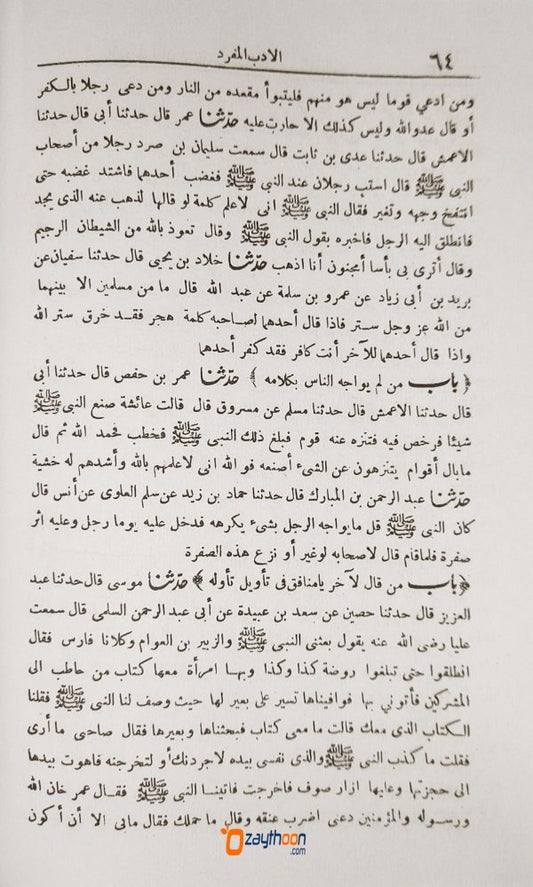 ٦٤
الادب المفرد
ومن ادعي قوما ليس هو منهم فليتبوأ مقعده من النار ومن دعى رجلا بالكفر
أو قال عدو الله وليس كذلك الا حارت عليه حدّثنا عمر قال حدثنا أبى قال حدثنا
الاعمش قال حدثنا عدى بن ثابت قال سمعت سليمان بن صرد رجلا من أصحاب
النبى ﷺ قال استب رجلان عند النبى ﷺ فغضب أحدهما فاشتد غضبه حتى
انتفخ وجهه وتغير فقال النبى ﷺ انى لاعلم كلمة لو قالها لذهب عنه الذى يجد
فانطلق اليه الرجل فاخبره بقول النبى ﷺ وقال تعوذ بالله من الشيطان الرجيم
وقال أترى بى بأسا أمجنون أنا اذهب حدّثنا خلاد بن يحيى قال حدثنا سفيان عن
يريد بن أبى زياد عن عمرو بن سلمة عن عبد الله قال ما من مسلمين الا بينهما
من الله عز وجل ستر فاذا قال أحدهما لصاحبه كلمة هجر فقد خرق ستر الله
واذا قال أحدهما للآخر أنت كافر فقد كفر أحدهما
﴿ باب من لم يواجه الناس بكلامه ﴾ حدّثنا عمر بن حفص قال حدثنا أبى
قال حدثنا الاعمش قال حدثنا مسلم عن مسروق قال قالت عائشة صنع النبى ﷺ
شيئا فرخص فيه فتنزه عنه قوم فبلغ ذلك النبى ﷺ فخطب فحمد الله ثم قال
مابال أقوام يتنزهون عن الشىء أصنعه فو الله انى لاعلمهم بالله وأشدهم له خشية
حدّثنا عبد الرحمن بن المبارك قال حدثنا حماد بن زيد عن سلم العلوى عن أنس قال
كان النبى ﷺ قل ما يواجه الرجل بشىء يكرهه فدخل عليه يوما رجل وعليه اثر
صفرة فلما قام قال لاصحابه لو غير أو نزع هذه الصفرة
﴿ باب من قال لآخر يا منافق فى تأويل تأوله ﴾ حدّثنا موسى قال حدثنا عبد
العزيز قال حدثنا حصين عن سعد بن عبيدة عن أبى عبد الرحمن السلمى قال سمعت
عليا رضى الله عنه يقول بعثنى النبى ﷺ والزبير بن العوام وكلانا فارس فقال
انطلقوا حتى تبلغوا روضة كذا وكذا وبها امرأة معها كتاب من حاطب الى
المشركين فأتونى بها فوافيناها تسير على بعير لها حيث وصف لنا النبى ﷺ فقلنا
الكتاب الذى معك قالت ما معى كتاب فبحثناها وبعيرها فقال صاحبى ما أرى
فقلت ما كذب النبى ﷺ والذى نفسى بيده لاجردنك أو لتخرجنه فاهوت بيدها
الى حجزتها وعليها ازار صوف فاخرجت فاتينا النبى ﷺ فقال عمر خان الله
ورسوله والمؤمنين دعنى اضرب عنقه وقال ما حملك فقال مابى الا أن أكون
zaythoon
.com